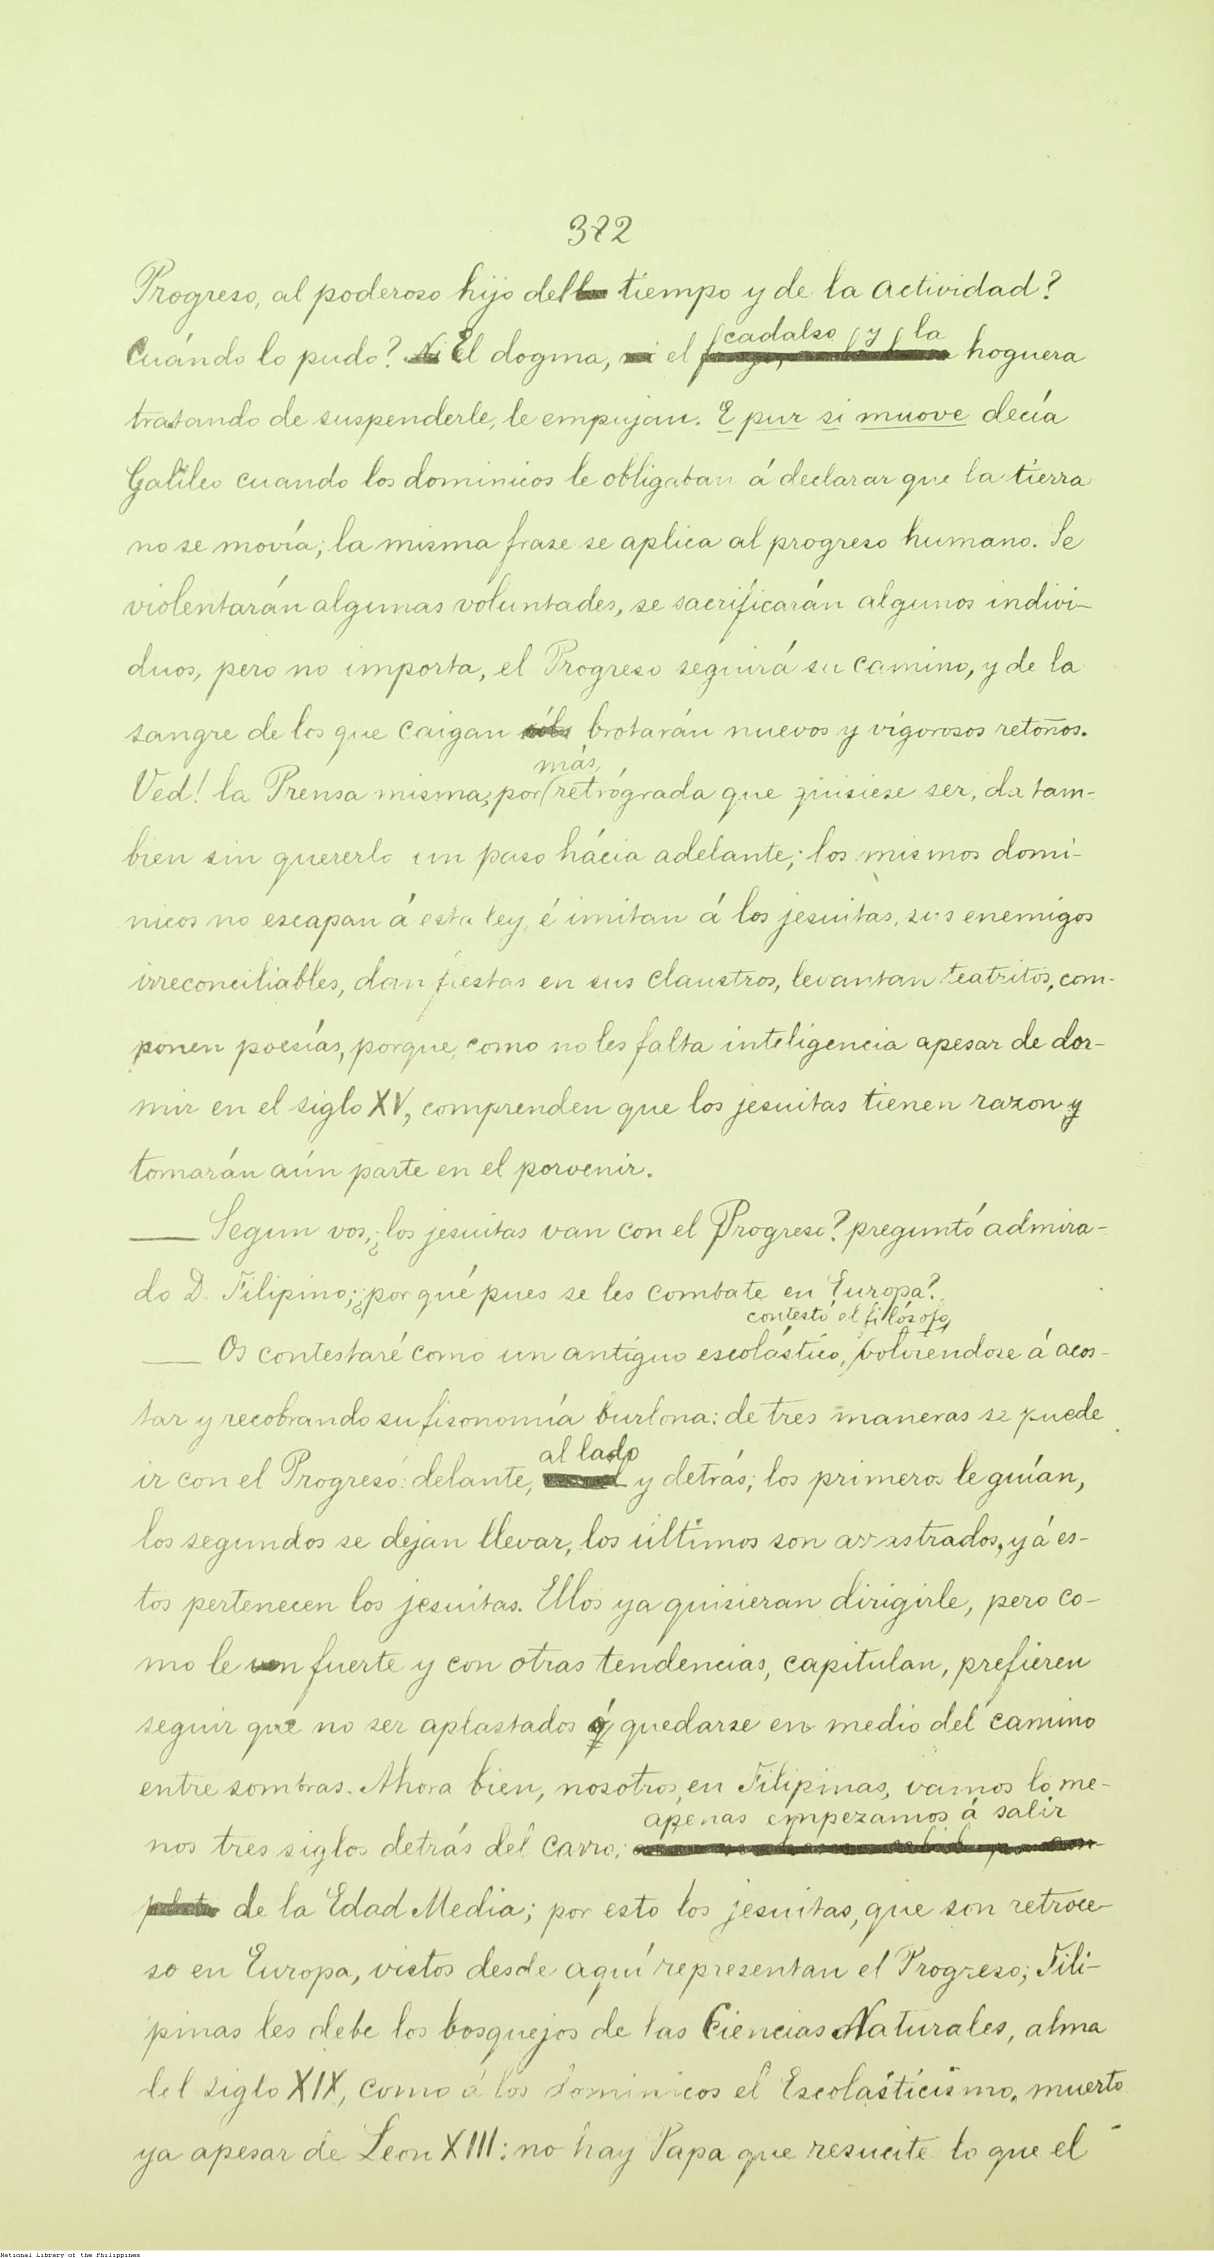 372
Progreso, al poderoso hijo del tiempo y de la actividad?
Cuándo lo pudo? El dogma, el cadalso y la hoguera
tratando de suspenderle, le empujan. E pur si muove decía
Galileo cuando los dominicos le obligaban á declarar que la tierra
no se movía; la misma frase se aplica al progreso humano. Se
violentarán algunas voluntades, se sacrificarán algunos indivi-
duos, pero no importa, el Progreso seguirá su camino, y de la
sangre de los que caigan brotarán nuevos y vigorosos retoños.
Ved! la Prensa misma, por más retrógrada que quisiese ser, da tam-
bien sin quererlo un paso hácia adelante; los mismos domi-
nicos no escapan á esta ley é imitan á los jesuitas, sus enemigos
irreconciliables, dan fiestas en sus claustros, levantan teatritos, com-
ponen poesías, porque, como no les falta inteligencia apesar de dor-
mir en el siglo XV, comprenden que los jesuitas tienen razon y
tomarán aún parte en el porvenir.
— Segun vos, ¿los jesuitas van con el Progreso? preguntó admira-
do D. Filipino; ¿por qué pues se les combate en Europa?
— Os contestaré como un antiguo escolástico, contestó el filósofo, volviendose á acos-
tar y recobrando su fisonomía burlona: de tres maneras se puede
ir con el Progreso: delante, al lado y detrás; los primeros le guían,
los segundos se dejan llevar, los últimos son arrastrados, y á es-
tos pertenecen los jesuitas. Ellos ya quisieran dirigirle, pero co-
mo le ven fuerte y con otras tendencias, capitulan, prefieren
seguir que no ser aplastados ó quedarse en medio del camino
entre sombras. Ahora bien, nosotros, en Filipinas, vamos lo me-
nos tres siglos detrás del carro; apenas empezamos á salir
de la Edad Media; por esto los jesuitas, que son retroce-
so en Europa, vistos desde aquí representan el Progreso; Fili-
pinas les debe los bosquejos de las Ciencias Naturales, alma
del siglo XIX, como á los dominicos el Escolasticismo, muerto
ya apesar de Leon XIII: no hay Papa que resucite lo que el
National Library of the Philippines